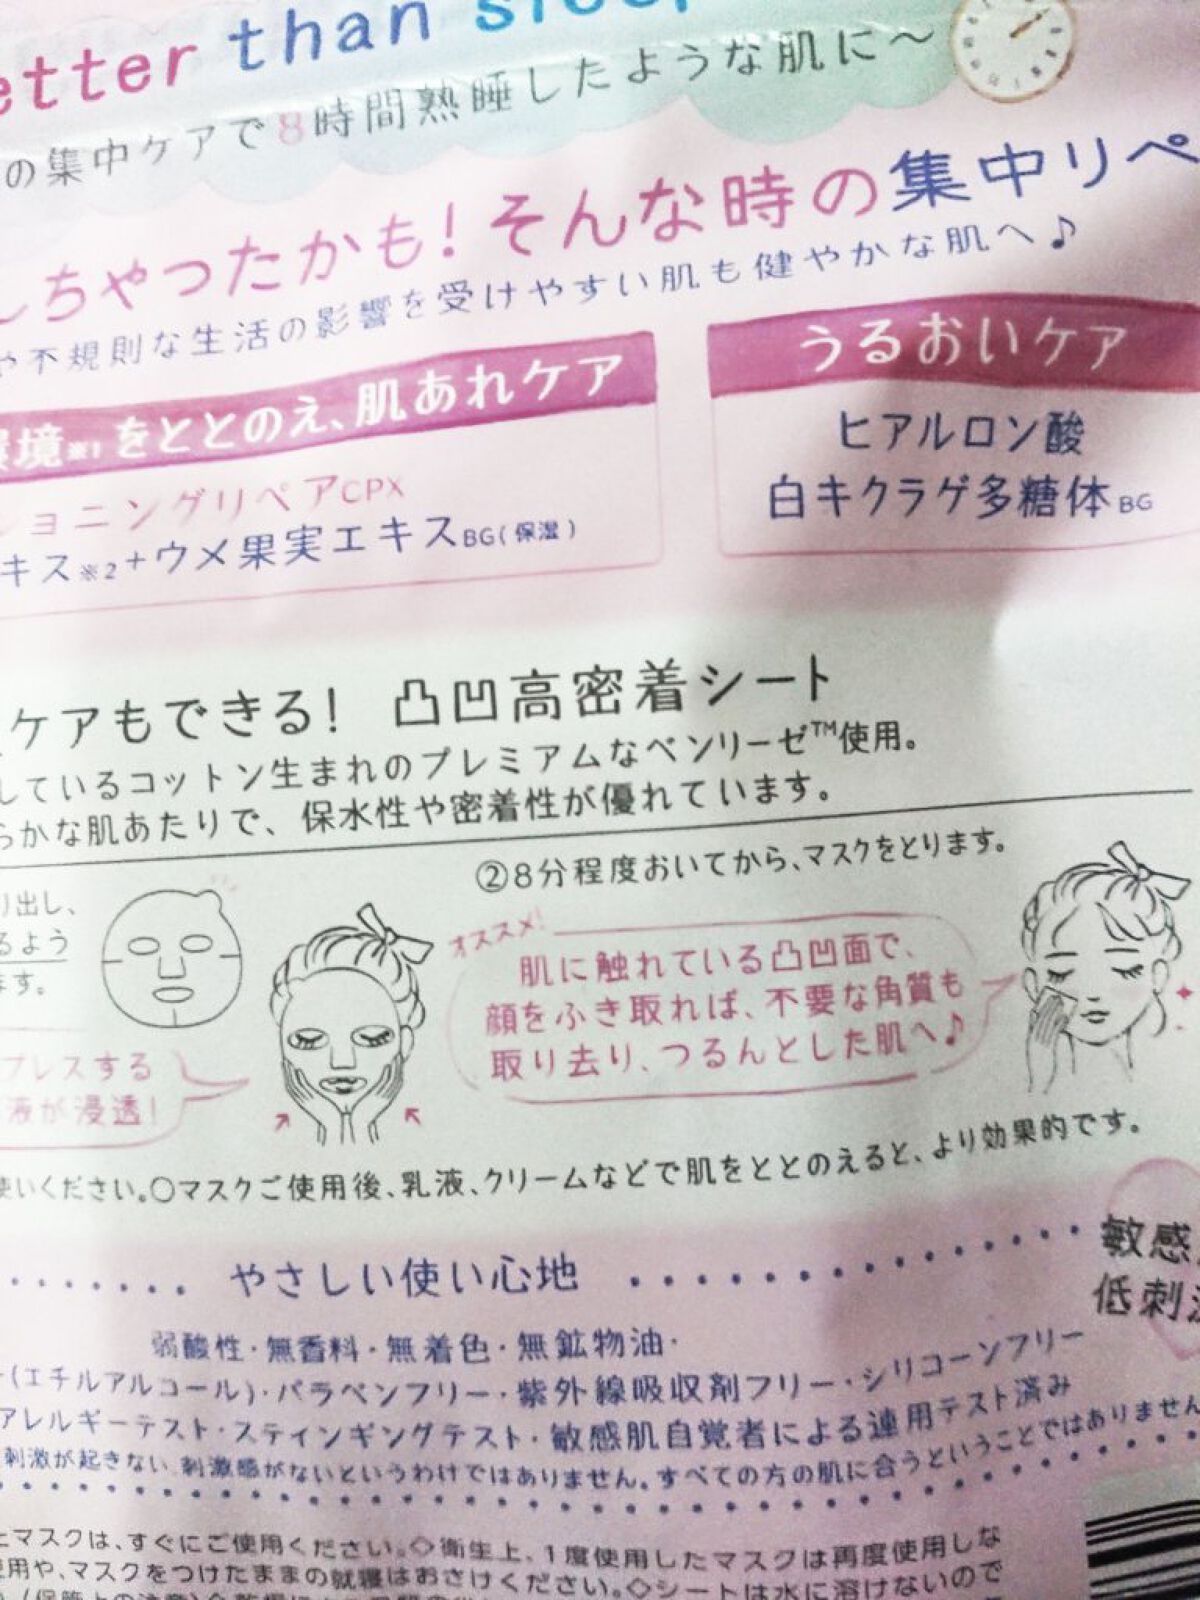 etter than sleep
の集中ケアで8時間熟睡したような肌に〜
しちゃったかも！そんな時の集中リペ
や不規則な生活の影響を受けやすい肌も健やかな肌へ♪
環境※1をととのえ、肌あれケア
うるおいケア
ショニングリペアCPX
キス※2+ウメ果実エキスBG(保湿)
ヒアルロン酸
白キクラゲ多糖体BG
ケアもできる！ 凸凹高密着シート
しているコットン生まれのプレミアムなベンリーゼ™使用。
らかな肌あたりで、保水性や密着性が優れています。
り出し、
るよう
ます。
プレスする
液が浸透！
②8分程度おいてから、マスクをとります。
オススメ！
肌に触れている凸凹面で、
顔をふき取れば、不要な角質も
取り去り、つるんとした肌へ♪
使いください。○マスクご使用後、乳液、クリームなどで肌をととのえると、より効果的です。
やさしい使い心地
敏感
低刺激
弱酸性・無香料・無着色・無鉱物油・
ー(エチルアルコール)・パラベンフリー・紫外線吸収剤フリー・シリコーンフリー
アレルギーテスト・スティンギングテスト・敏感肌自覚者による連用テスト済み
刺激が起きない、刺激感がないというわけではありません。すべての方の肌に合うということではありません
たマスクは、すぐにご使用ください。◇衛生上、1度使用したマスクは再度使用しな
使用や、マスクをつけたままの就寝はおさけください。◇シートは水に溶けないので